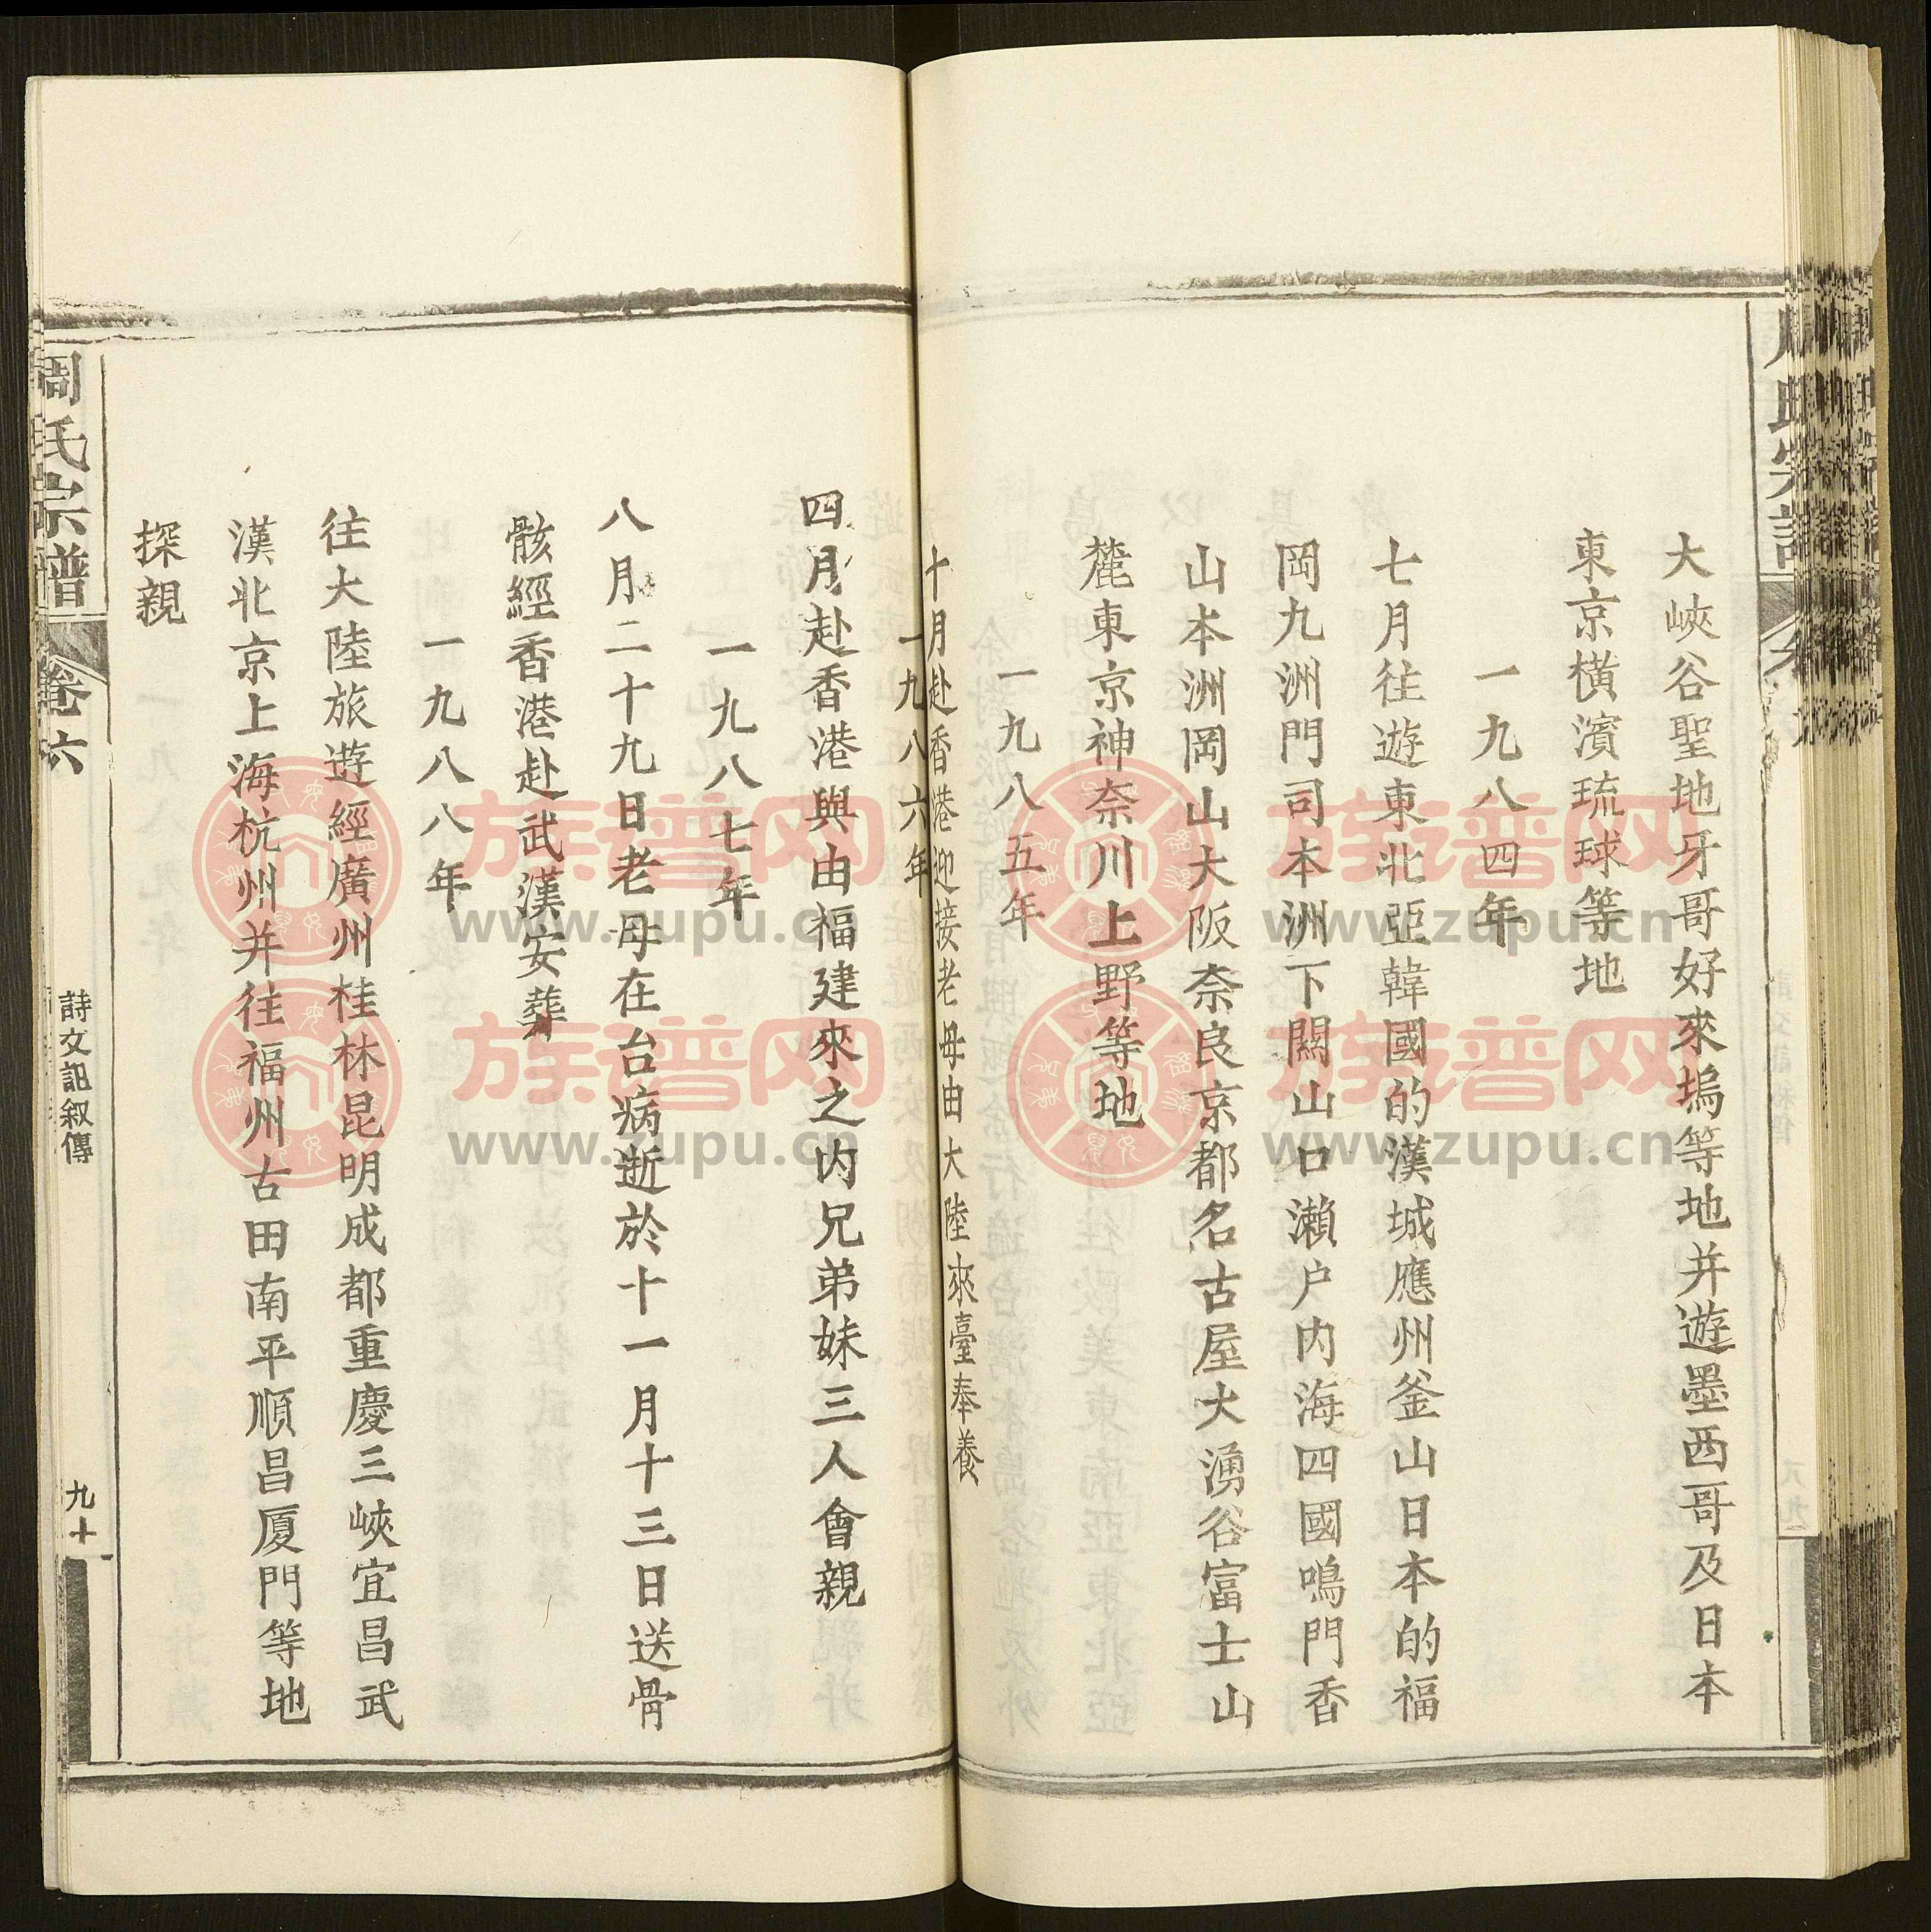 大峽谷聖地牙哥好來塢等地并遊墨西哥及日本
東京橫濱琉球等地
一九八四年
七月往遊東北亞韓國的漢城應州釜山日本的福
岡九洲門司本洲下關山口瀨户内海四國鳴門香
山本洲岡山大阪奈良京都名古屋大湧谷富士山
麓東京神奈川上野等地
一九八五年
十月赴香港迎接老母由大陸來臺奉養
一九八六年
四月赴香港與由福建來之内兄弟妹三人會親
一九八七年
八月二十九日老母在台病逝於十一月十三日送骨
骸經香港赴武漢安葬
一九八八年
往大陸旅遊經廣州桂林昆明成都重慶三峽宜昌武
漢北京上海杭州并往福州古田南平順昌厦門等地
探親
周氏宗譜
卷六
詩文詛叙傳
九十
族谱网
www.zupu.cn
族谱网
www.zupu.cn
族谱网
www.zupu.cn
族谱网
www.zupu.cn